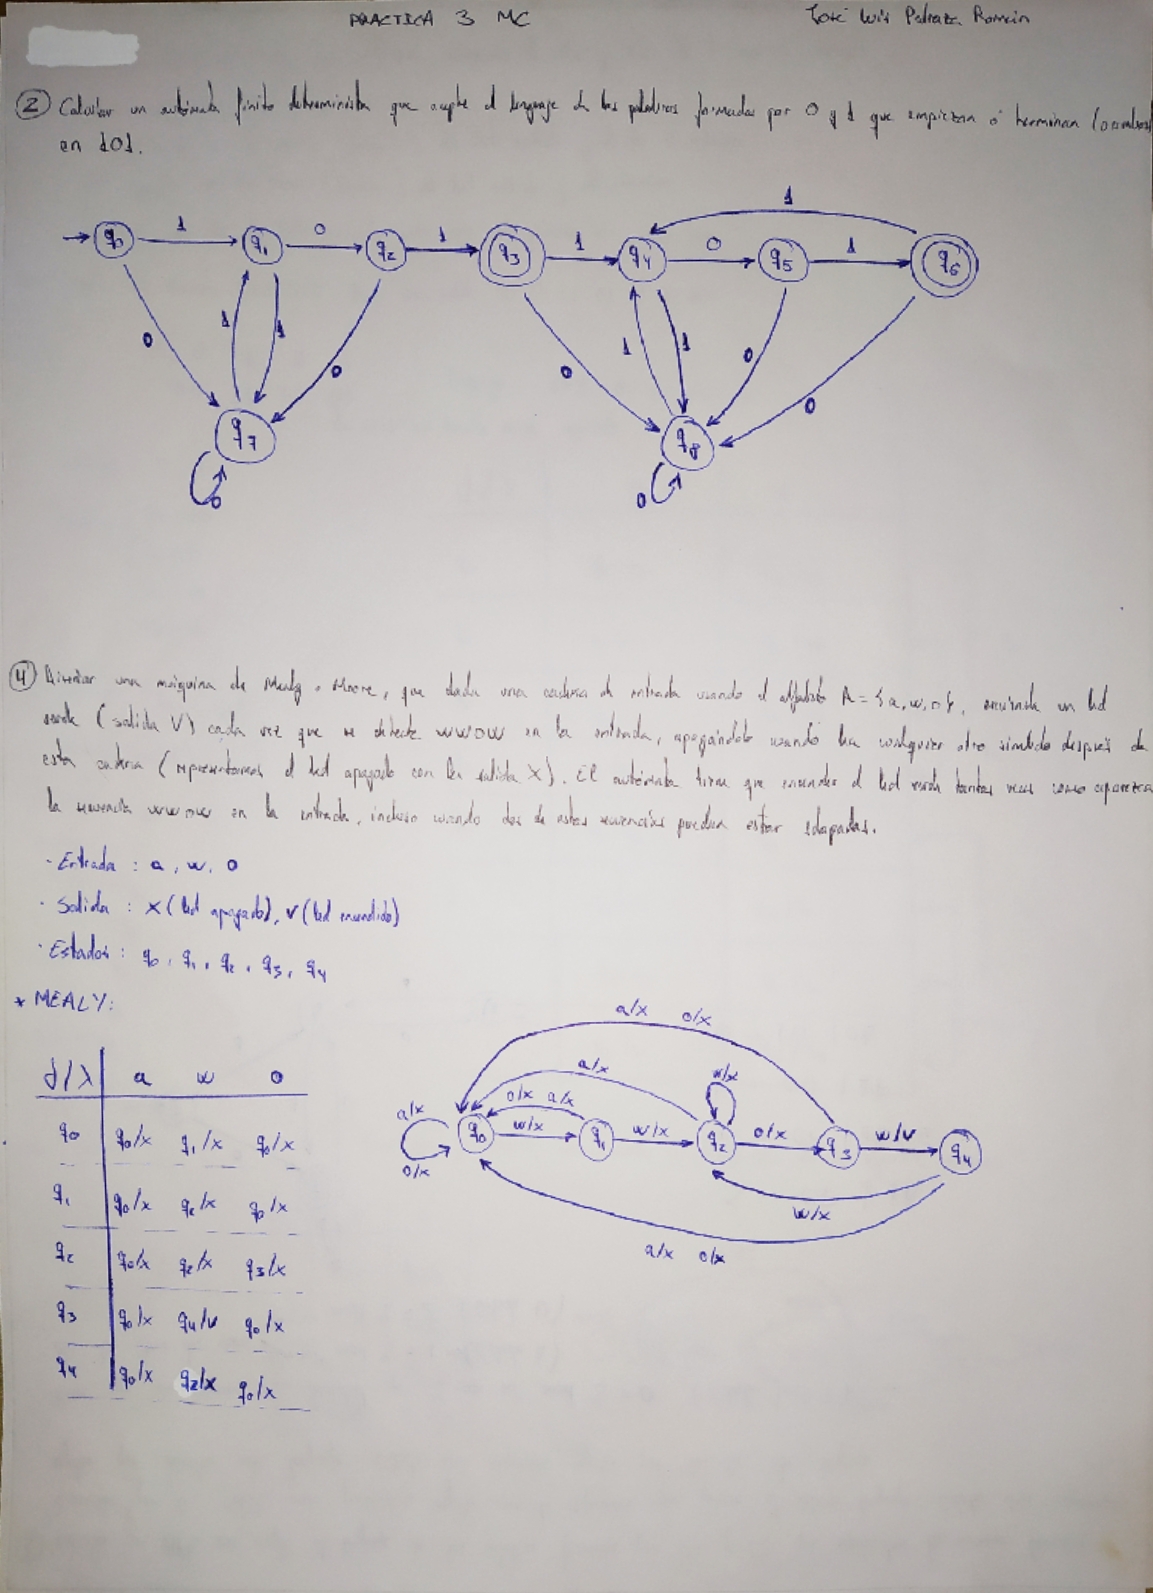 PRACTICA 3 MC
José Luis Pedraza Román
2 Calcular un autómata finito determinista que acepte el lenguaje de las palabras formadas por 0 y 1 que empiezan o terminan (o ambas)
en 101.
1
q0 1 q1 0 q2 1 q3 1 q4 0 q5 1 q6
0 1 1 0 0 1 1 0 0
q7 q8
0 0
4 Diseñar una máquina de Mealy o Moore, que dada una cadena de entrada usando el alfabeto A = {a, w, o}, encienda un led
verde (salida V) cada vez que se detecte wwow en la entrada, apagándolo cuando lea cualquier otro símbolo después de
esta cadena (representamos el led apagado con la salida X). El autómata tiene que encender el led verde tantas veces como aparezca
la secuencia wwow en la entrada, incluso cuando dos de estas secuencias puedan estar solapadas.
· Entrada : a, w, o
· Salida : X (led apagado), V (led encendido)
· Estados : q0, q1, q2, q3, q4
* MEALY:
a/x o/x
δ/λ a w o
a/x w/x
o/x a/x
a/x q0 w/x q1 w/x q2 o/x q3 w/v q4
o/x
q0 q0/x q1/x q0/x
q1 q0/x q2/x q0/x
w/x
a/x o/x
q2 q0/x q2/x q3/x
q3 q0/x q4/v q0/x
q4 q0/x q2/x q0/x